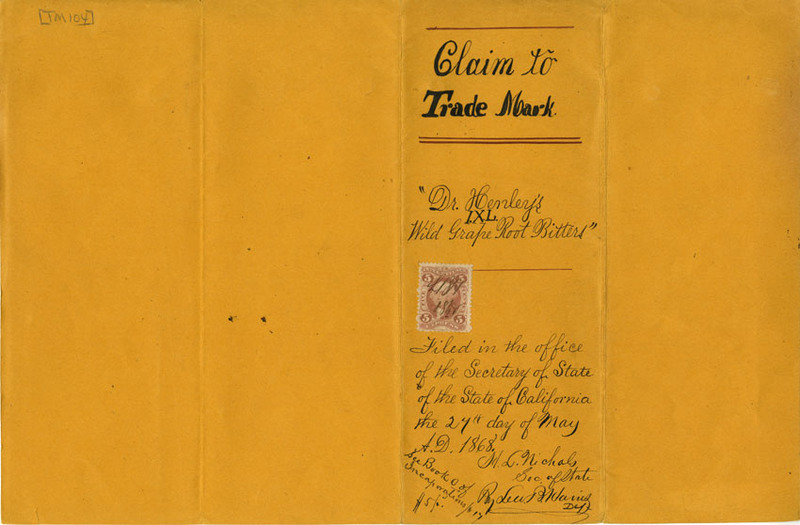 [TM104]
Claim to
Trade Mark.
"Dr. Henley's
IXL
Wild Grape Root Bitters"
5 5
5 5
Filed in the office
of the Secretary of State
of the State of California
the 27th day of May
A.D. 1868,
H. L. Nichols
Sec. of State
By
Dept
See Book of
Incorporations